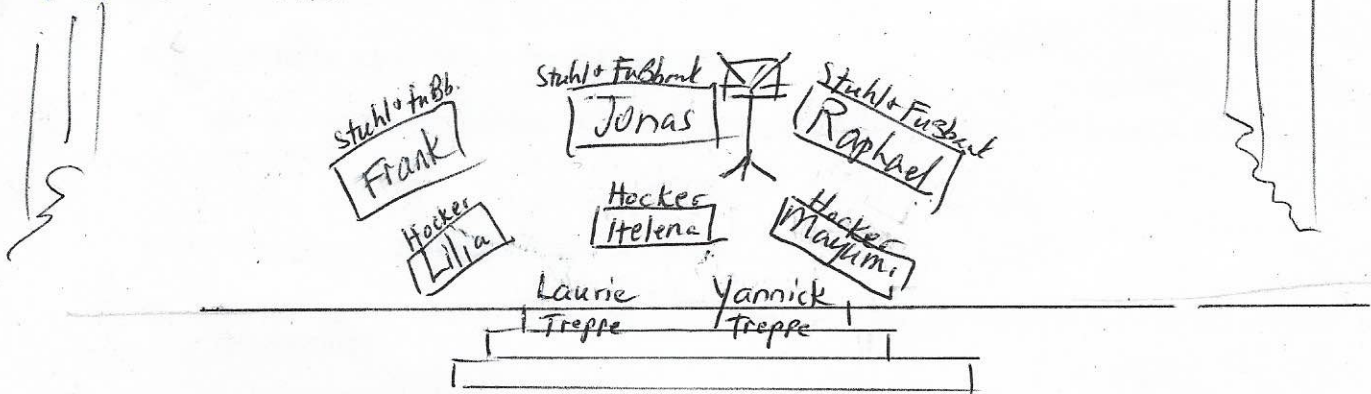 Stuhl + Fußb.
Frank
Stuhl + Fußbank
Jonas
Stuhl + Fußbank
Raphael
Hocker
Lilia
Hocker
Helena
Hocker
Mayumi
Laurie
Treppe
Yannick
Treppe